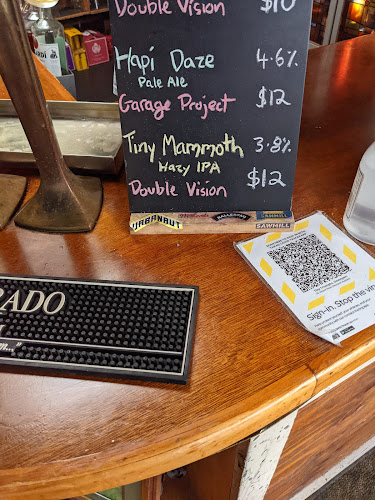 Double Vision $10
Hapi Daze 4.6%
Pale Ale
Garage Project $12
Tiny Mammoth 3.8%
Hazy IPA
Double Vision $12
URBANAUT
SAWMILL
Sign-in. Stop the vir
RADO